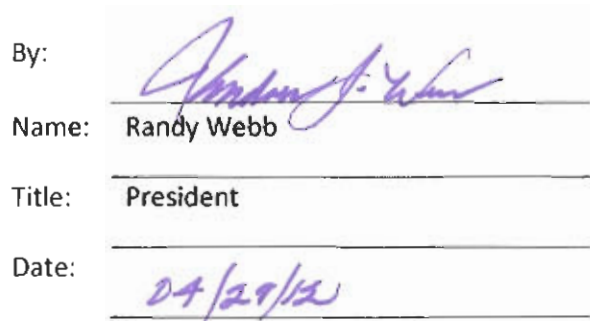 By:
Name: Randy Webb
Title: President
Date: 04/29/12